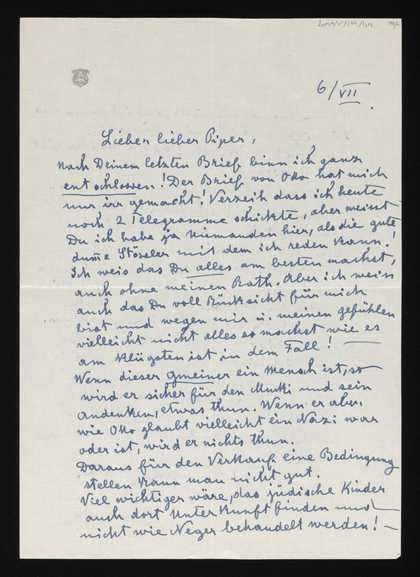 6/VII.
Lieber lieber Piper,
nach Deinem letzten Brief binn ich ganz
entschlossen! Der Brief von Otto hat mich
nur irr gemacht! Verzeih dass ich heute
noch 2 Telegramme schickte, aber weisst
Du ich habe ja Niemanden hier, als die gute
dume Stöseler mit dem ich reden kann!
Ich weis das Du alles am besten machst,
auch ohne meinen Rath. Aber ich weiss
auch das Du voll Rücksicht für mich
bist und wegen mir u. meinen gefühlen
vielleicht nicht alles so machst wie es
am klügsten ist in dem Fall! —
Wenn dieser gmeiner ein Mensch ist, so
wird er sicher für den Mutti und sein
andenken, etwas thun. Wenn er aber
wie Otto glaubt vielleicht ein Nazi war
oder ist, wird er nichts thun.
Daraus für den Verkauf eine Bedingung
stellen kann man nicht gut.
Viel wichtiger wäre, das jüdische Kinder
auch dort Unterkunft finden und
nicht wie Neger behandelt werden! —